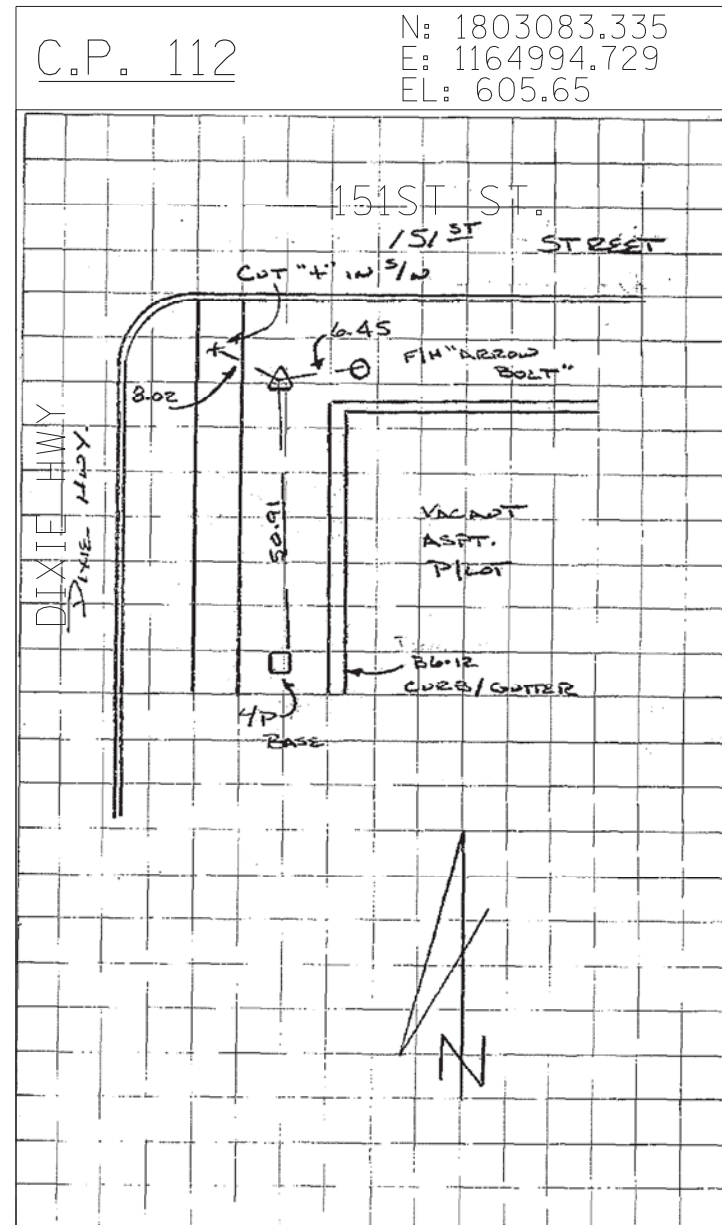 C.P. 112
N: 1803083.335
E: 1164994.729
EL: 605.65
151ST ST.
151 ST STREET
CUT "+" IN S/W
6.45
F/H "ARROW
BOLT"
8.02
DIXIE HWY
DIXIE HWY.
50.91
VACANT
ASPT.
P/LOT
B6.12
CURB/GUTTER
BASE
N